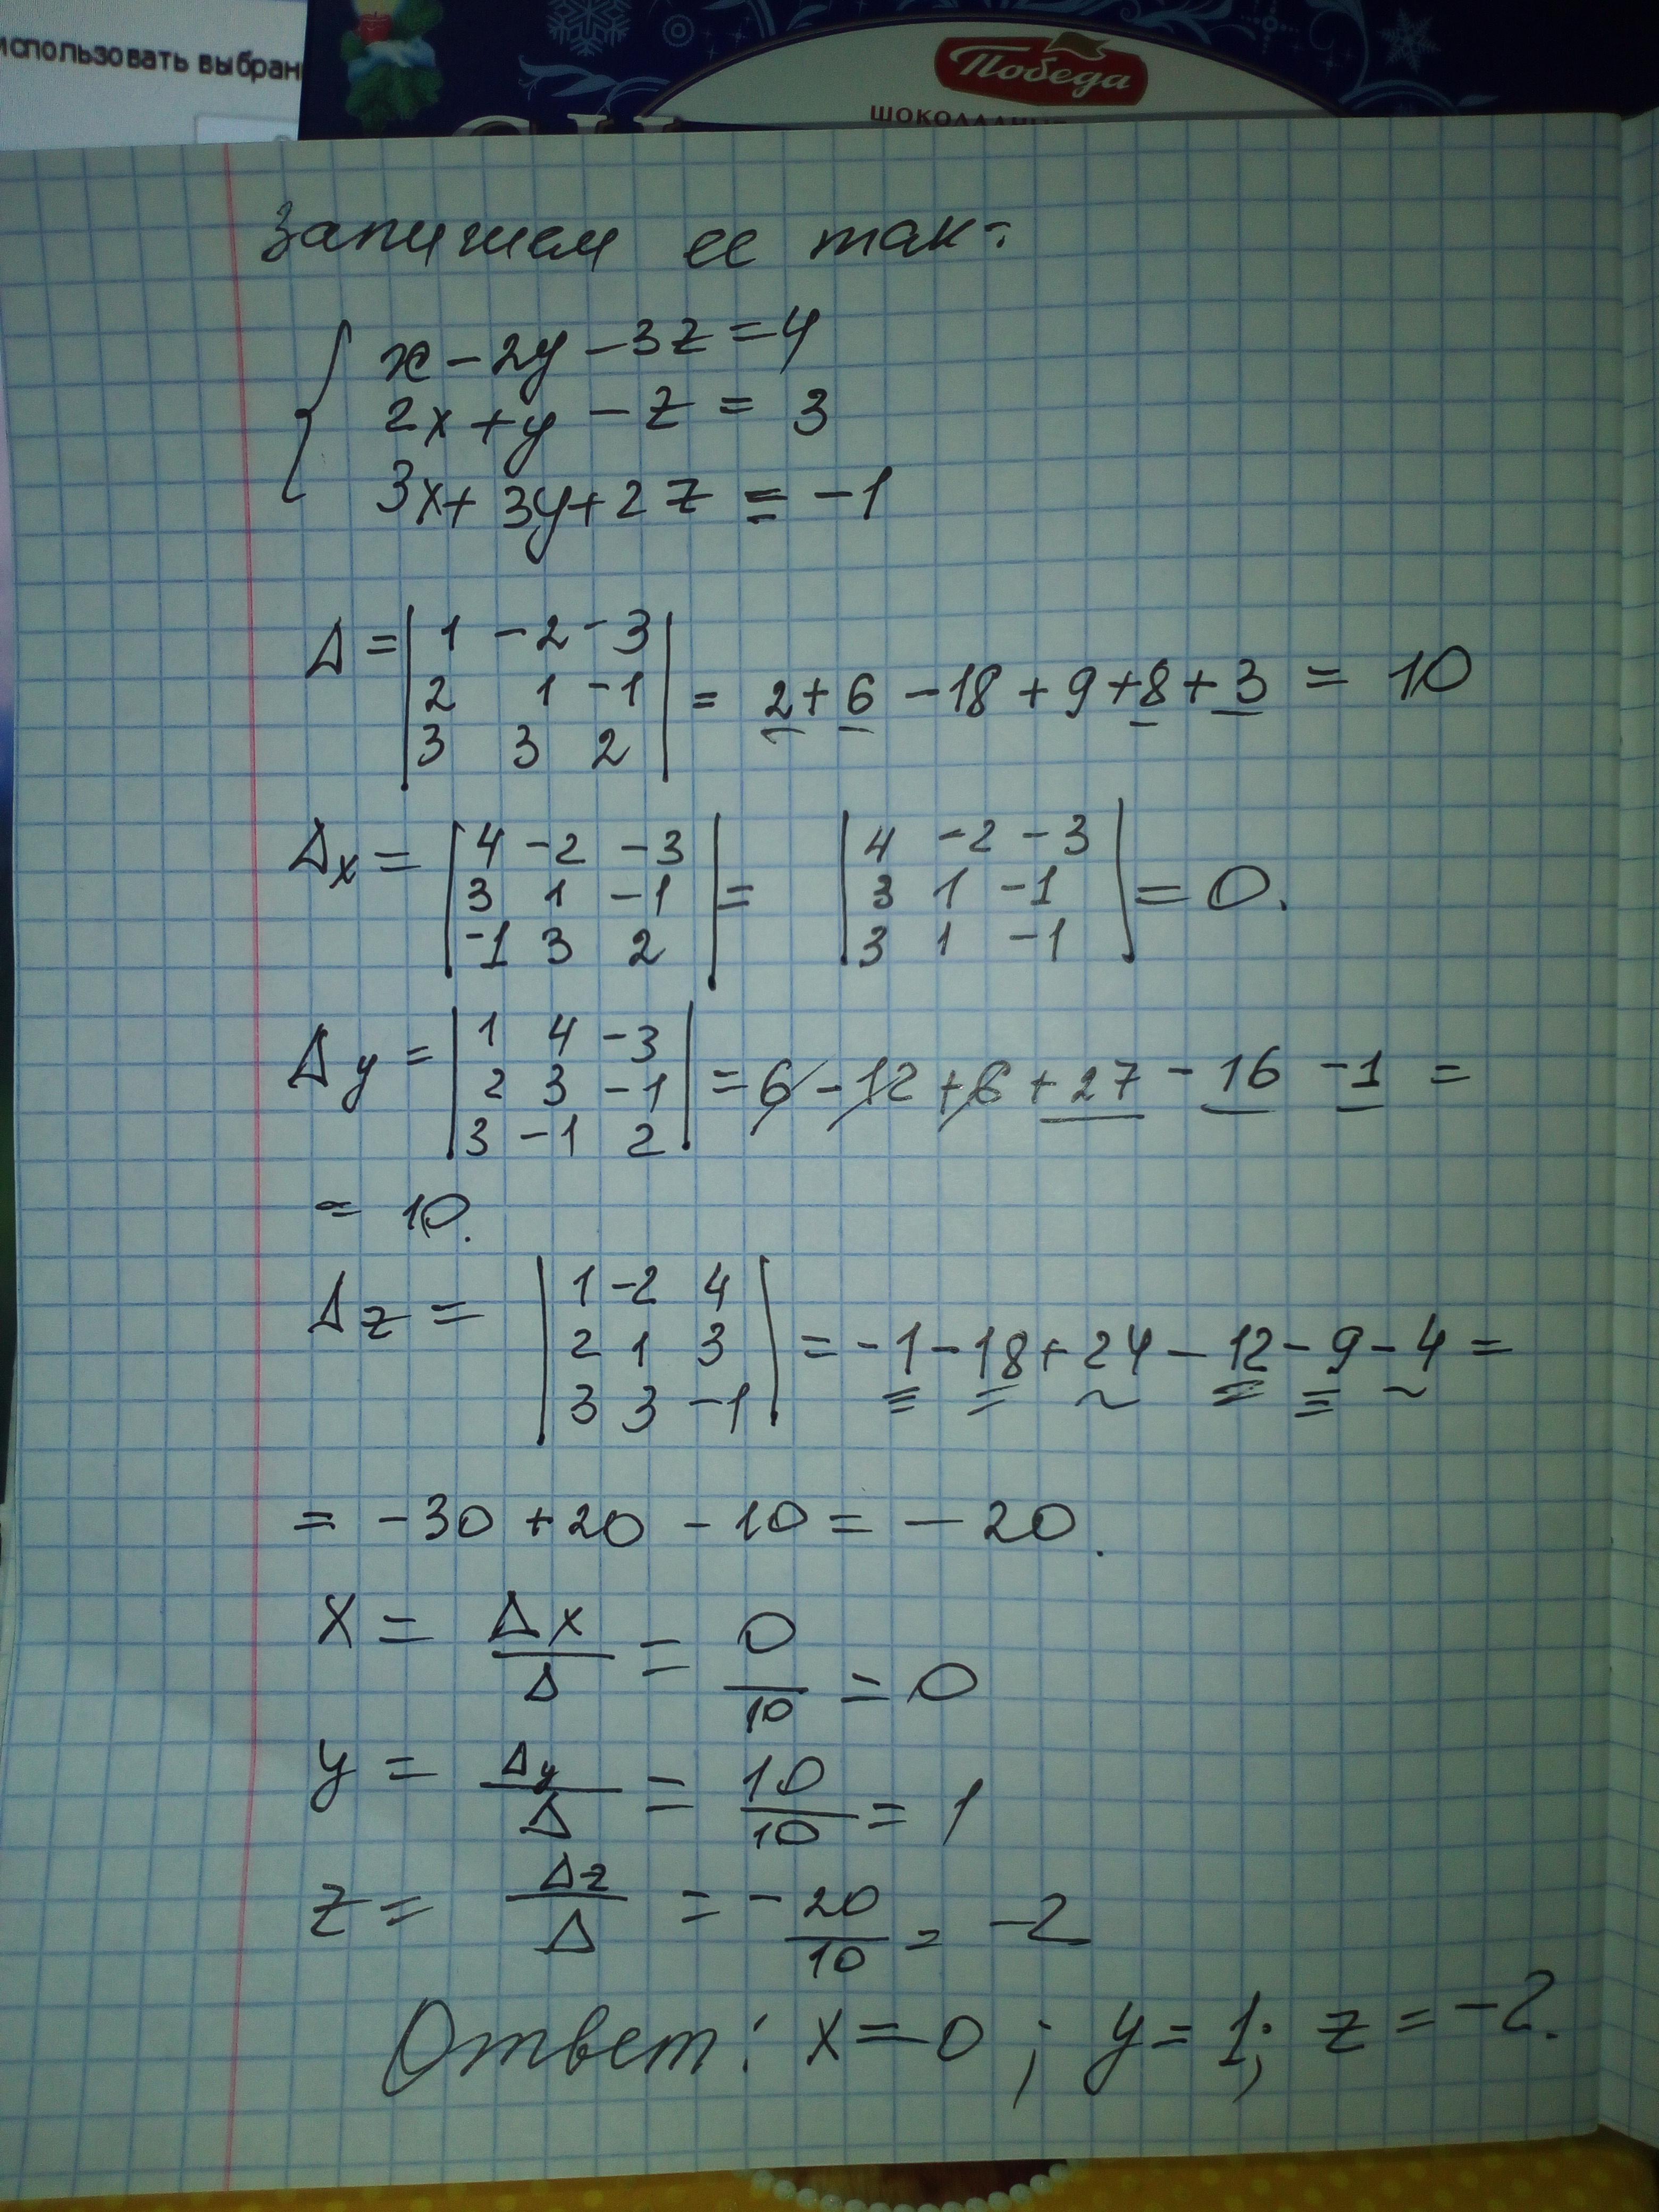 использовать выбран
Победа
ШОКОЛАДНЫЕ
Запишем ее так:
x - 2y - 3z = 4
2x + y - z = 3
3x + 3y + 2z = -1
Δ = | 1 -2 -3 |
| 2 1 -1 | = 2 + 6 - 18 + 9 + 8 + 3 = 10
| 3 3 2 |
Δx = | 4 -2 -3 | = | 4 -2 -3 | = 0.
| 3 1 -1 | | 3 1 -1 |
| -1 3 2 | | 3 1 -1 |
Δy = | 1 4 -3 |
| 2 3 -1 | = 6 - 12 + 6 + 27 - 16 - 1 =
| 3 -1 2 |
= 10.
Δz = | 1 -2 4 |
| 2 1 3 | = -1 - 18 + 24 - 12 - 9 - 4 =
| 3 3 -1 |
= -30 + 20 - 10 = -20.
x = Δx/Δ = 0/10 = 0
y = Δy/Δ = 10/10 = 1
z = Δz/Δ = -20/10 = -2
Ответ: x = 0; y = 1; z = -2.